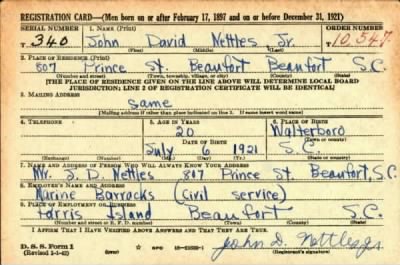 REGISTRATION CARD—(Men born on or after February 17, 1897 and on or before December 31, 1921)
SERIAL NUMBER 1. NAME (Print) ORDER NUMBER
T. 340 John David Nettles Jr. 10,547
(First) (Middle) (Last)
2. PLACE OF RESIDENCE (Print)
807 Prince St. Beaufort Beaufort S.C.
(Number and street) (Town, township, village, or city) (County) (State)
[THE PLACE OF RESIDENCE GIVEN ON THE LINE ABOVE WILL DETERMINE LOCAL BOARD
JURISDICTION; LINE 2 OF REGISTRATION CERTIFICATE WILL BE IDENTICAL]
3. MAILING ADDRESS
Same
[Mailing address if other than place indicated on line 2. If same insert word same]
4. TELEPHONE 5. AGE IN YEARS 6. PLACE OF BIRTH
20 Walterboro
DATE OF BIRTH (Town or county)
July 6 1921 S.C.
(Exchange) (Number) (Mo.) (Day) (Yr.) (State or country)
7. NAME AND ADDRESS OF PERSON WHO WILL ALWAYS KNOW YOUR ADDRESS
Mr. J. D. Nettles 807 Prince St. Beaufort, S.C.
8. EMPLOYER'S NAME AND ADDRESS
Marine Barracks (Civil service)
9. PLACE OF EMPLOYMENT OR BUSINESS
Parris Island Beaufort S.C.
(Number and street or R. F. D. number) (Town) (County) (State)
I AFFIRM THAT I HAVE VERIFIED ABOVE ANSWERS AND THAT THEY ARE TRUE.
D. S. S. Form 1
(Revised 1-1-42) (over)
John D. Nettles Jr
(Registrant's signature)